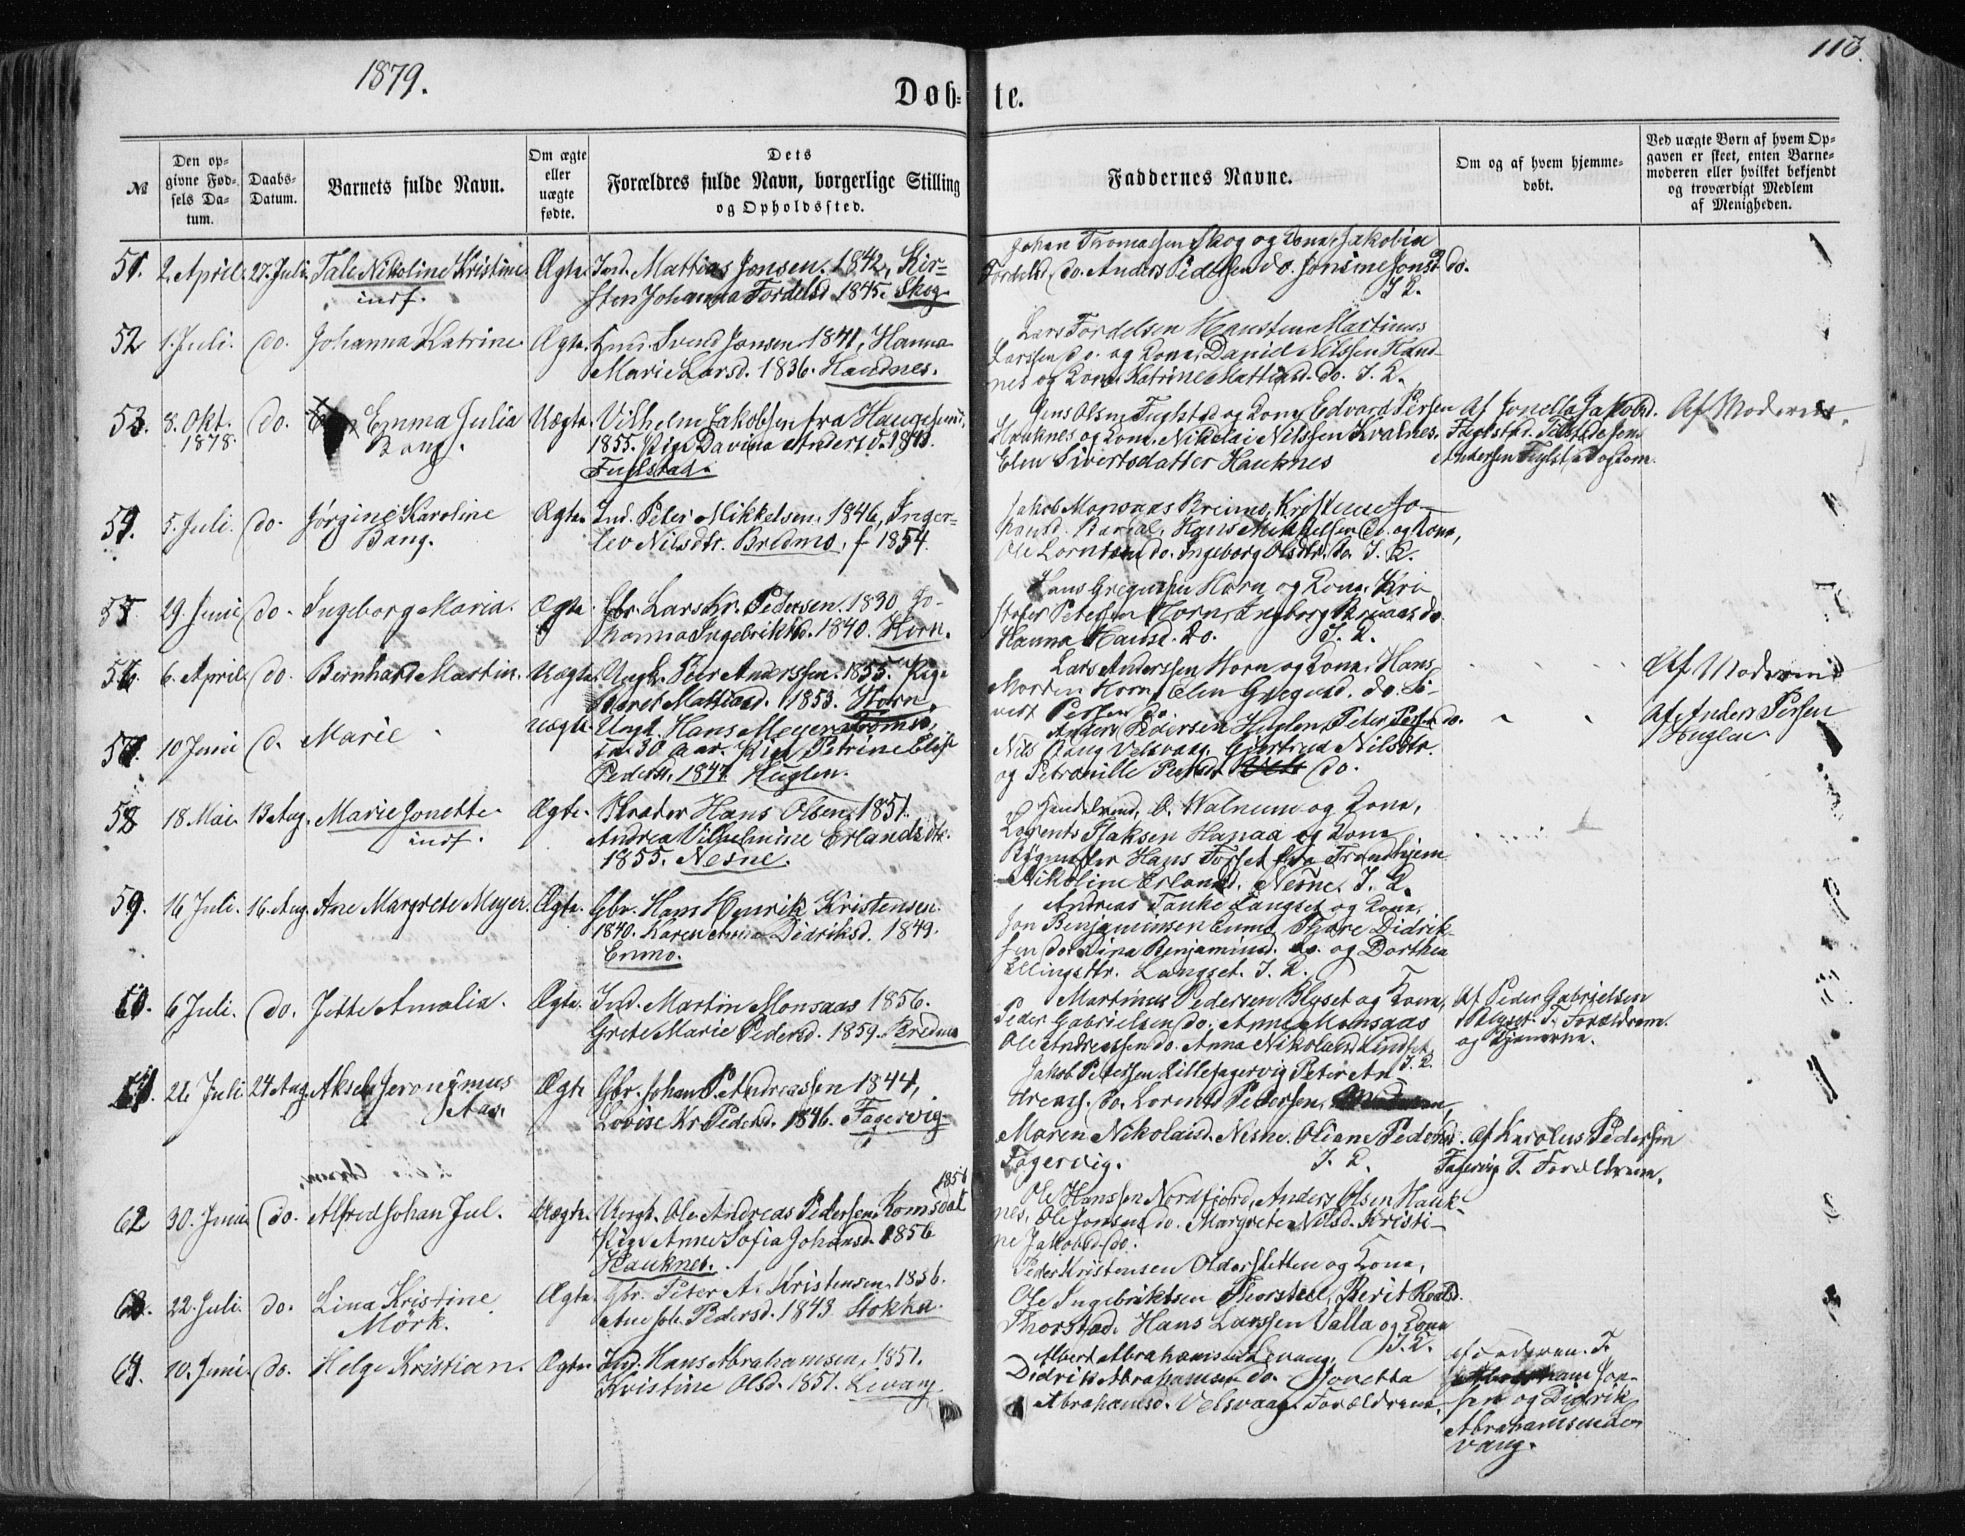 1879.
113.
Døb-
te.
№
Den op-
givne Fød-
sels Da-
tum.
Daabs-
Datum.
Barnets fulde Navn.
Om ægte
eller
uægte
fødte.
Dets
Forældres fulde Navn, borgerlige Stilling
og Opholdssted.
Faddernes Navne.
Om og af hvem hjemme-
døbt.
Ved uægte Børn af hvem Op-
gaven er skeet, enten Barne-
moderen eller hvilket bekjendt
og troværdigt Medlem
af Menigheden.
51. 2. April. 27. Juli. Tale Nikoline Kristine Ægte. Ind. Mattias Jonsen. 1842, Kir-
indf. sten Johanna Fordelsd. 1845. Skog
Johan Thomassen Skog og Kona, Jakobia
Fordelsd. do. Anders Pedersen do. Jonsine Jonsd. do.
I. K.
52 1. Juli. do. Johanna Katrine Ægte. Svend Jonsen 1841, Hanna
Marie Larsd. 1836. Haudnes.
Lars Fordelsen Martinus
Larssen do. og Kona, Daniel Nilssen Haud-
nes og Kona, Katrine Mattiasd. do. I. K.
53. 8. Okt. do. Emma Julia Uægte. Vilhelm Jakobsen fra Haugesund
1878. Bang. 1855. Pige Davina Andersd. 1843.
Fuglstad.
Jens Olsen Fuglstad og Kona, Edvard Persen
Hauknes og Kona. Nikolai Nilssen Kvalnes.
Elen Sivertsdatter Hauknes
Af Jonella Jakobsd.
Fuglstad. Tilstede Jens
Andersen Fuglstad og Kona.
Af Moderen.
54. 5. Juli. do. Jørgine Karoline Ægte. Ind. Peter Mikkelsen. 1846, Inger-
Bang. lev Nilsdtr. Bredmo. f 1854.
Jakob Monsaas Breimo, Kristine Jo-
hansd. Hans Mikkelsen do. og Kona,
Ole do. Ingeborg Olsdtr. do. I. K.
55 29. Juni do. Ingeborg Maria. Ægte. Gbr. Lars Kr. Pedersen. 1830 Jo-
hanna Ingebriktsd. 1840. Horn.
Hans Gregusen Horn og Kona. Kri-
stofer Petersen Horn, Ingeborg do
Hanna Hansd. do. I. K.
56. 6. April. do. Bernhard Martin. Uægte. Ungk. Peter Anderssen. 1855. Pige
Beret Mattiasd. 1853. Horn.
Lars Anderssen Horn og Kona. Hans
Morten Horn, Elen Gregusd. do. Si-
vert Persen do.
Af Moderen
57. 10 Juni d. Marie Uægte Ungk. Hans Meyer
ca. 30 Aar. Pige Petrine Elise
Pedersd. 1847. Huglen.
Anton Pedersen Huglen, Peter Persen do.
Nils Bang Velsvaag. Gjertrud Nilsdtr.
og Petronille Persd. do.
Af Anders Persen
Huglen
58 18 Mai 13 Aug. Marie Jonette Ægte. Skræder Hans Olsen, 1851.
indf. Andrea Vilhelmine Erlandsdtr.
1855. Nesne.
Handelsmd. C. Walnum og Kona,
Lorents Isaksen Hanaa og Kona
Hans Forset fra Trondhjem
Nikoline Erlandsd. Nesne. I. K.
59. 16 Juli. 16. Aug. Ane Margrete Meyer. Ægte. Gbr. Hans Henrik Kristensen.
1840. Karen Anna Didriksd. 1849.
Enmo.
Andreas Tanke Langset og Kona,
Jon Benjaminsen Enmo, Thore Didrik-
sen do. Dina Benjaminsd. do. og Dorthea
Ellingsdtr. Langset. I. K.
60. 6 Juli. do. Jette Amalia. Ægte. Ind. Martin Monsaas 1856.
Grete Marie Pedersd. 1859. Bredmo
Martinus Pedersen Blyset og Kona,
Peder Gabrielsen do. Anne Monsaas
Ole Andreassen do. Anna Nikolaisd. Lindset.
I. K.
Af Peder Gabrielsen
Blyset. T. Forældrene.
og Tjenerne.
61. 21. Juli 24 Aug. Aksel Jeronymus Ægte Gbr. Johan P. Andreassen 1844,
Aas. Lovise Kr. Pedersd. 1846. Fagervig
Jakob Petersen Lillefagervig, Peter An-
dreass. do. Lorents Pedersen,
Maren Nikolaisd. Nesne, Oliane Pedersd.
Fagervig. I. K.
Af Karolus Pedersen
Fagervig T. Forældrene.
62 30. Juni do. Alfred Johan Jul. Uægte. Ungk. Ole Andreas Pedersen, Romsdal
Pige Anne Sofia Johansd. 1856
Hauknes.
Ole Hanssen Nordfjord, Anders Olsen Hauk-
nes, Ole Jonsen do. Margrete Nilsd. Kristi-
ne Jakobsd. do.
63. 22. Juli. do. Lina Kristine Ægte. Gbr. Peter A. Kristensen. 1836.
Mørk. Ane Joh. Pedersd. 1843. Stokka.
Peder Kristensen og Kona,
Ole Ingebriktsen Thorstad, Berit Roalds.
Thorstad. Hans Larssen Valla og Kona
I. K.
64. 10. Juni do. Helge Kristian. Ægte. Ind. Hans Abrahamsen. 1851.
Kristine Olsd. 1851. Levang.
Albert Abrahamsen Levang,
Didrik Abrahamsen do. Jonetta
Abrahamsd. Velsvaag. Forældrene.
Af Faderen. T.
Abraham Jon-
sen og Didrik
Abrahamsen Le-
vang.